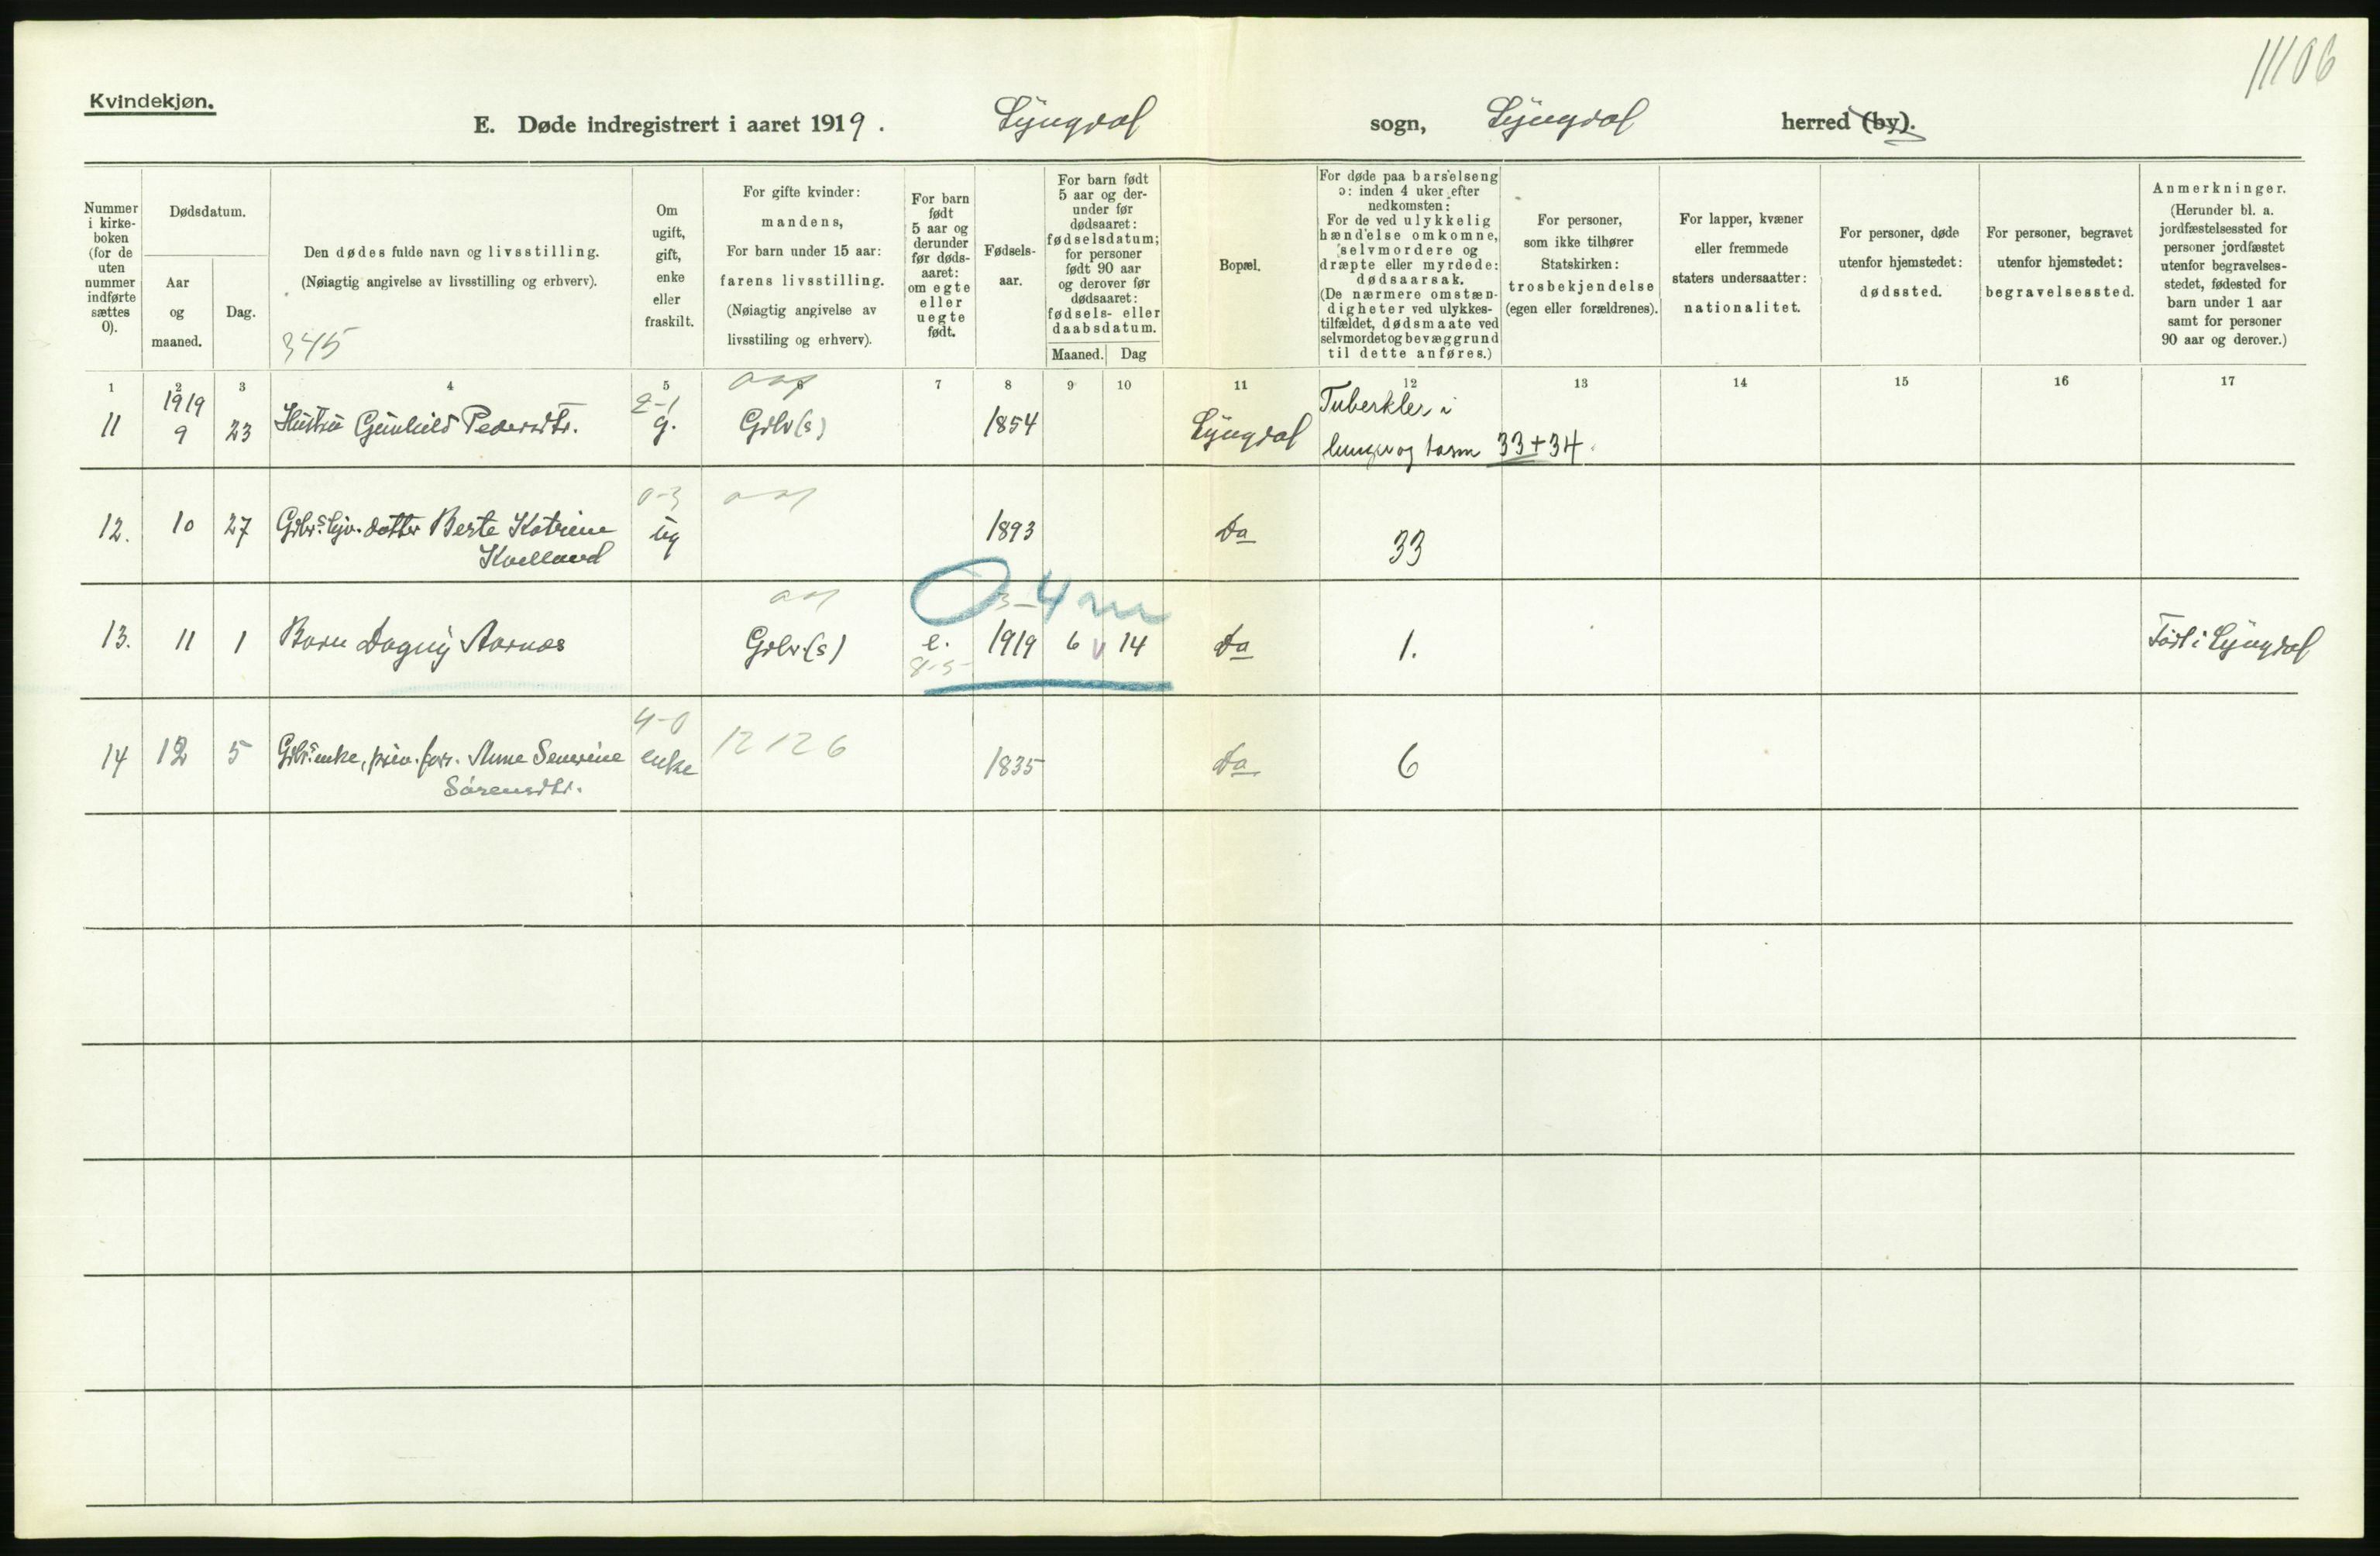 11106
Kvindekjøn.
E. Døde indregistrert i aaret 1919. Lyngdal sogn, Lyngdal herred (by).
Nummer
i kirke-
boken
(for de
uten
nummer
indførte
sættes
0).
Dødsdatum.
Aar
og
maaned.
Dag.
Den dødes fulde navn og livsstilling.
(Nøiagtig angivelse av livsstilling og erhverv).
345
Om
ugift,
gift,
enke
eller
fraskilt.
For gifte kvinder:
mandens,
For barn under 15 aar:
farens livsstilling.
(Nøiagtig angivelse av
livsstiling og erhverv).
For barn
født
5 aar og
derunder
før døds-
aaret:
om egte
eller
uegte
født.
Fødsels-
aar.
For barn født
5 aar og der-
under før
dødsaaret:
fødselsdatum;
for personer
født 90 aar
og derover før
dødsaaret:
fødsels- eller
daabsdatum.
Maaned. Dag
Bopæl.
For døde paa barselseng
ɔ: inden 4 uker efter
nedkomsten:
For de ved ulykkelig
hændelse omkomne,
selvmordere og
dræpte eller myrdede:
dødsaarsak.
(De nærmere omstæn-
digheter ved ulykkes-
tilfældet, dødsmaate ved
selvmordet og bevæggrund
til dette anføres.)
For personer,
som ikke tilhører
Statskirken:
trosbekjendelse
(egen eller forældrenes).
For lapper, kvæner
eller fremmede
staters undersaatter:
nationalitet.
For personer, døde
utenfor hjemstedet:
dødssted.
For personer, begravet
utenfor hjemstedet:
begravelsessted.
Anmerkninger.
(Herunder bl. a.
jordfæstelsessted for
personer jordfæstet
utenfor begravelses-
stedet, fødested for
barn under 1 aar
samt for personer
90 aar og derover.)
1 2 3 4 5 6 7 8 9 10 11 12 13 14 15 16 17
1919 2-1 Tuberkler i
11 9 23 Hustru Gunhild Pedersdtr. g. Grbr(s) 1854 Lyngdal lunger og tarm 33+34.
0-3
12. 10 27 datter Berte Katrine ug 1893 Do 33
Kvelland
0 3-4 m
13. 11 1 Barn Dagny Aarnes Grbr(s) e. 1919 6 v 14 Do 1. Født i Lyngdal
4-0 12126
14 12 5 Gbrs enke, priv. fors. Anne Severine enke 1835 Do 6
Sörensdtr.